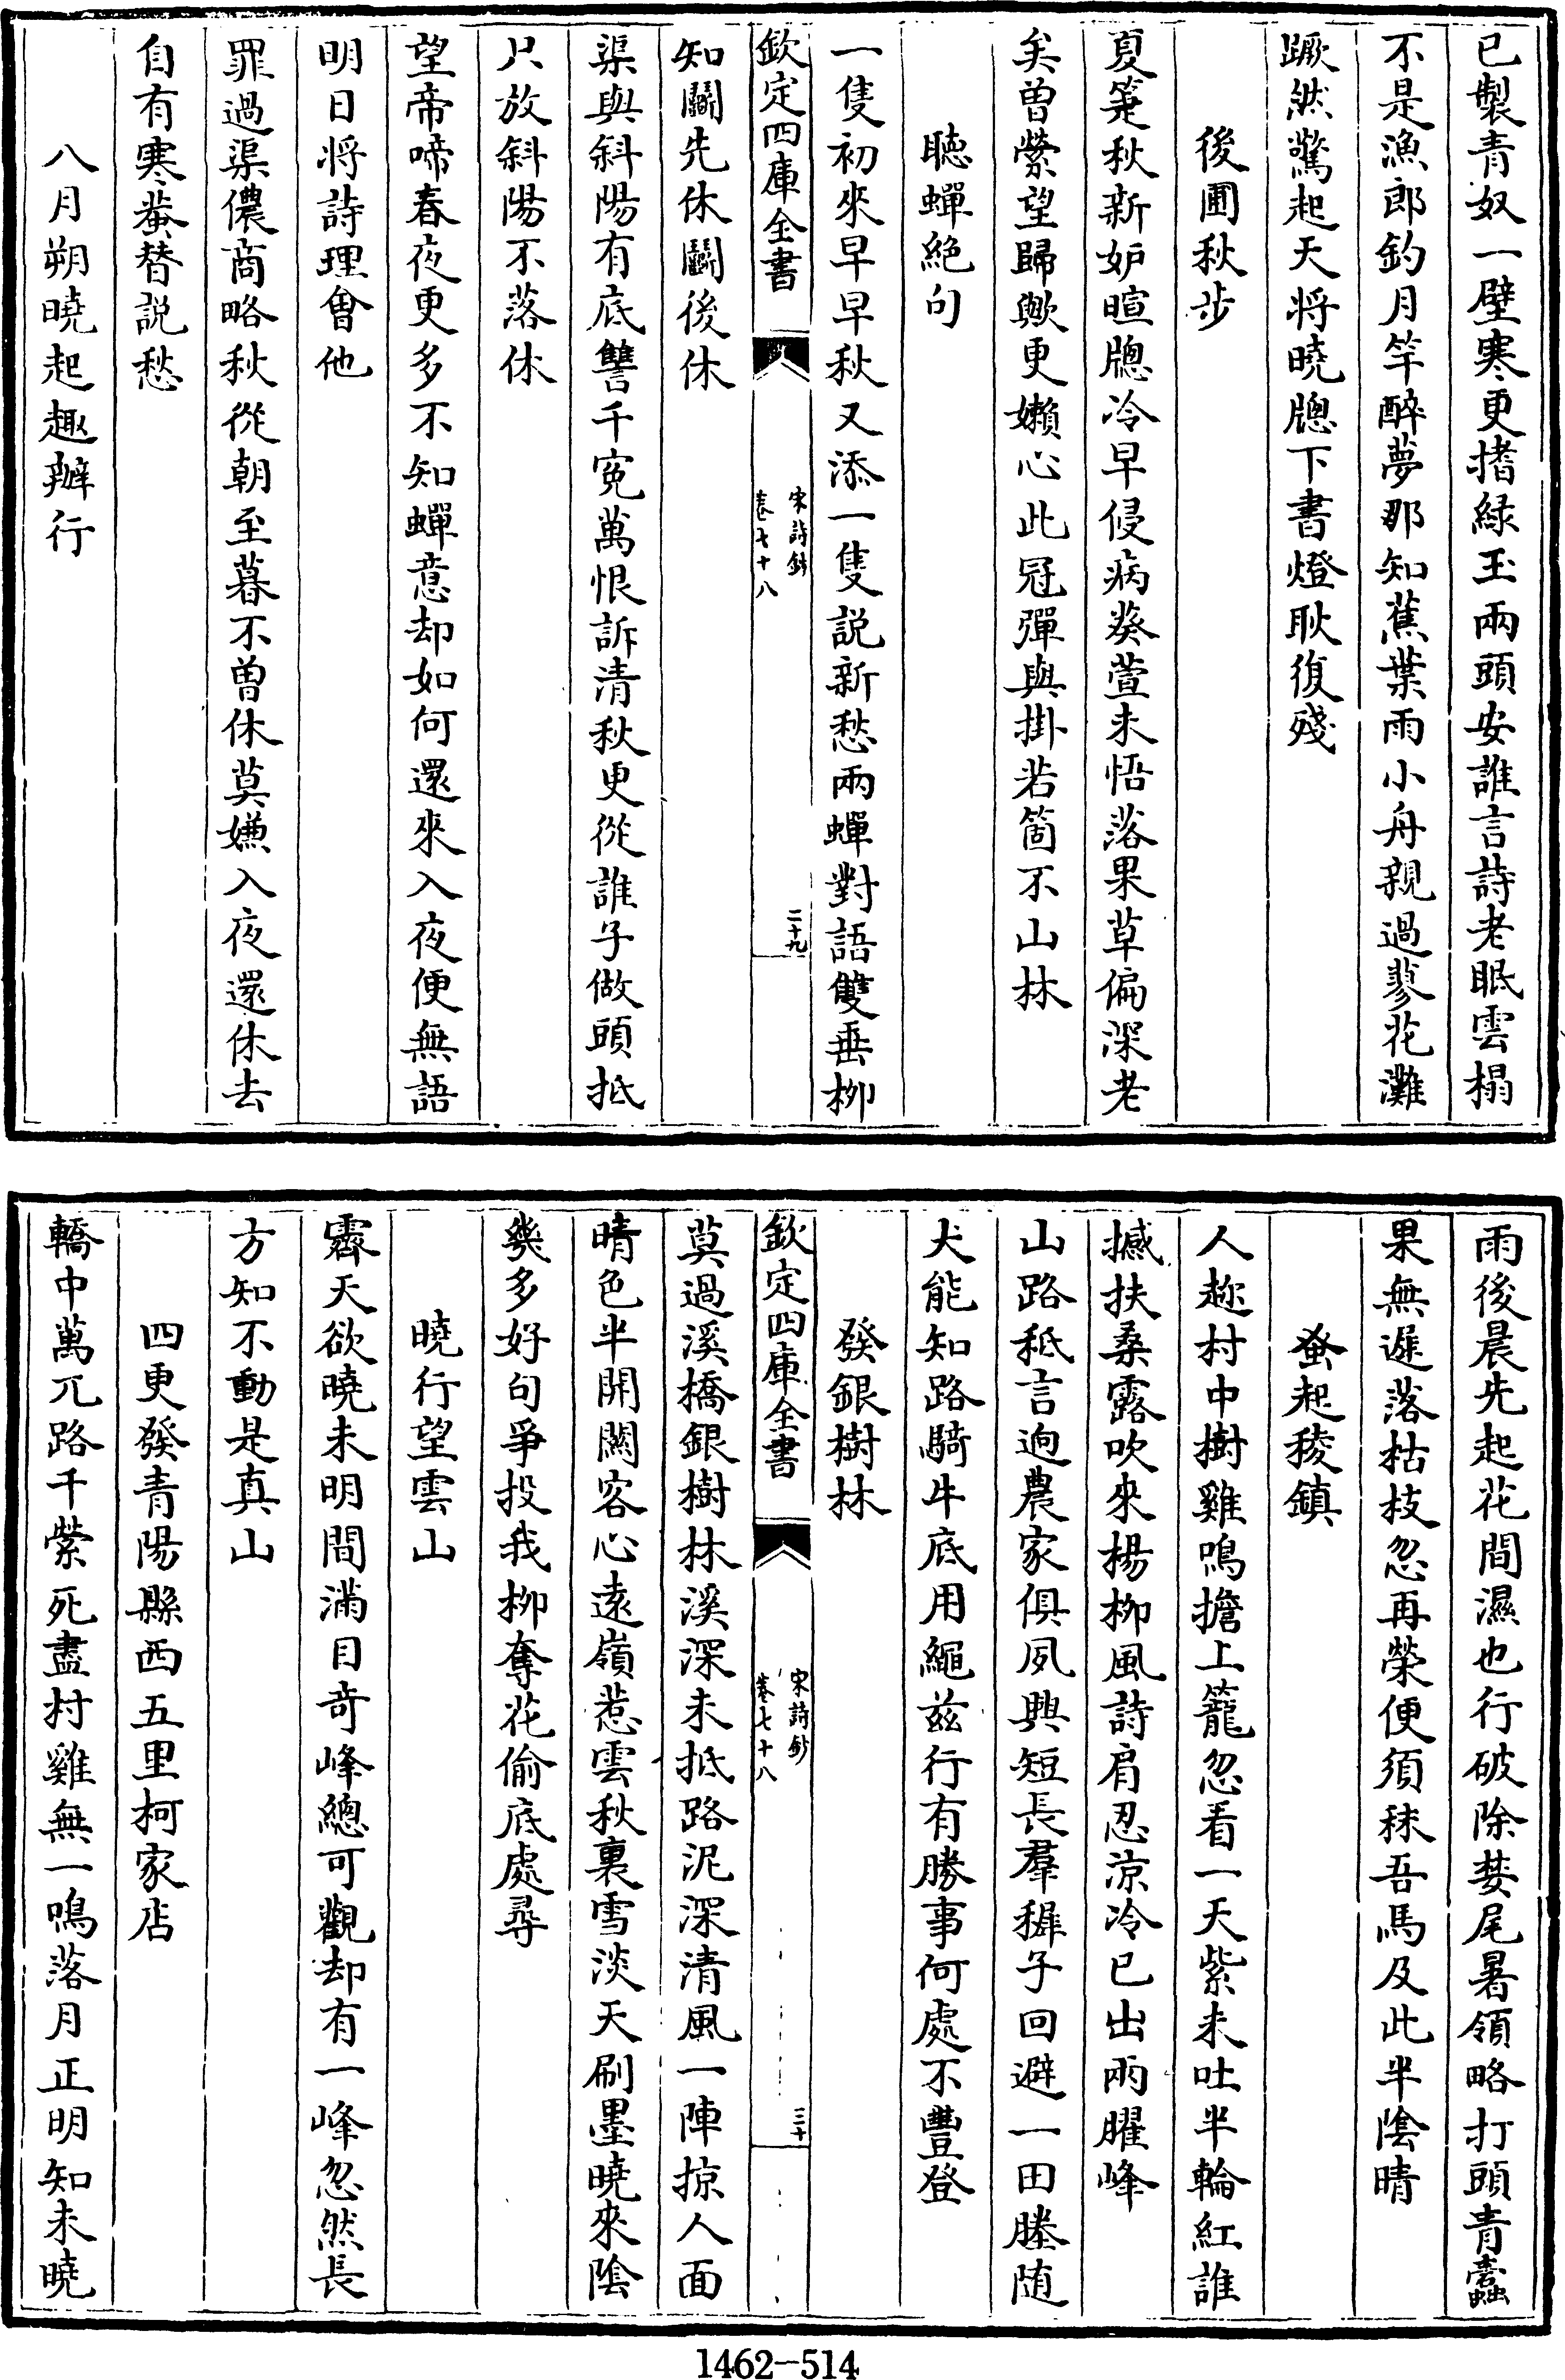 已製青奴一壁寒更揩緑玉兩頭安誰言詩老眠雲榻
不是漁郎釣月竿醉夢那知蕉葉雨小舟親過蓼花灘
蹶然驚起天將曉牕下書燈耿復殘
後圃秋步
夏箑秋新妒暄牕冷早侵病葵萱未悟落果草偏深老
矣曽縈望歸歟更嬾心此冠彈與掛若箇不山林
聴蟬絶句
一隻初來早早秋又添一隻説新愁兩蟬對語雙垂柳
欽定四庫全書
宋詩鈔
卷七十八
二十九
知鬭先休鬭後休
渠與斜陽有底讐千寃萬恨訴清秋更從誰子做頭抵
只放斜陽不落休
望帝啼春夜更多不知蟬意却如何還來入夜便無語
明日將詩理會他
罪過渠儂商略秋從朝至暮不曽休莫嫌入夜還休去
自有寒蛩替説愁
八月朔曉起趣辦行
雨後晨先起花間濕也行破除婪尾暑領略打頭青蠧
果無遲落枯枝忽再榮便須秣吾馬及此半陰晴
蚤起稜鎮
人趂村中樹雞鳴擔上籠忽看一天紫未吐半輪紅誰
撼扶桑露吹來楊柳風詩肩忍凉冷已出兩臞峰
山路秖言迥農家俱夙興短長羣穉子回避一田塍随
犬能知路騎牛底用繩兹行有勝事何處不豐登
發銀樹林
欽定四庫全書
宋詩鈔
卷七十八
三十
莫過溪橋銀樹林溪深未抵路泥深清風一陣掠人面
晴色半開關客心遠嶺惹雲秋裏雪淡天刷墨曉來陰
幾多好句爭投我柳奪花偷底處尋
曉行望雲山
霽天欲曉未明間滿目奇峰總可觀却有一峰忽然長
方知不動是真山
四更發青陽縣西五里柯家店
轎中萬兀路千縈死盡村雞無一鳴落月正明知未曉
1462-514